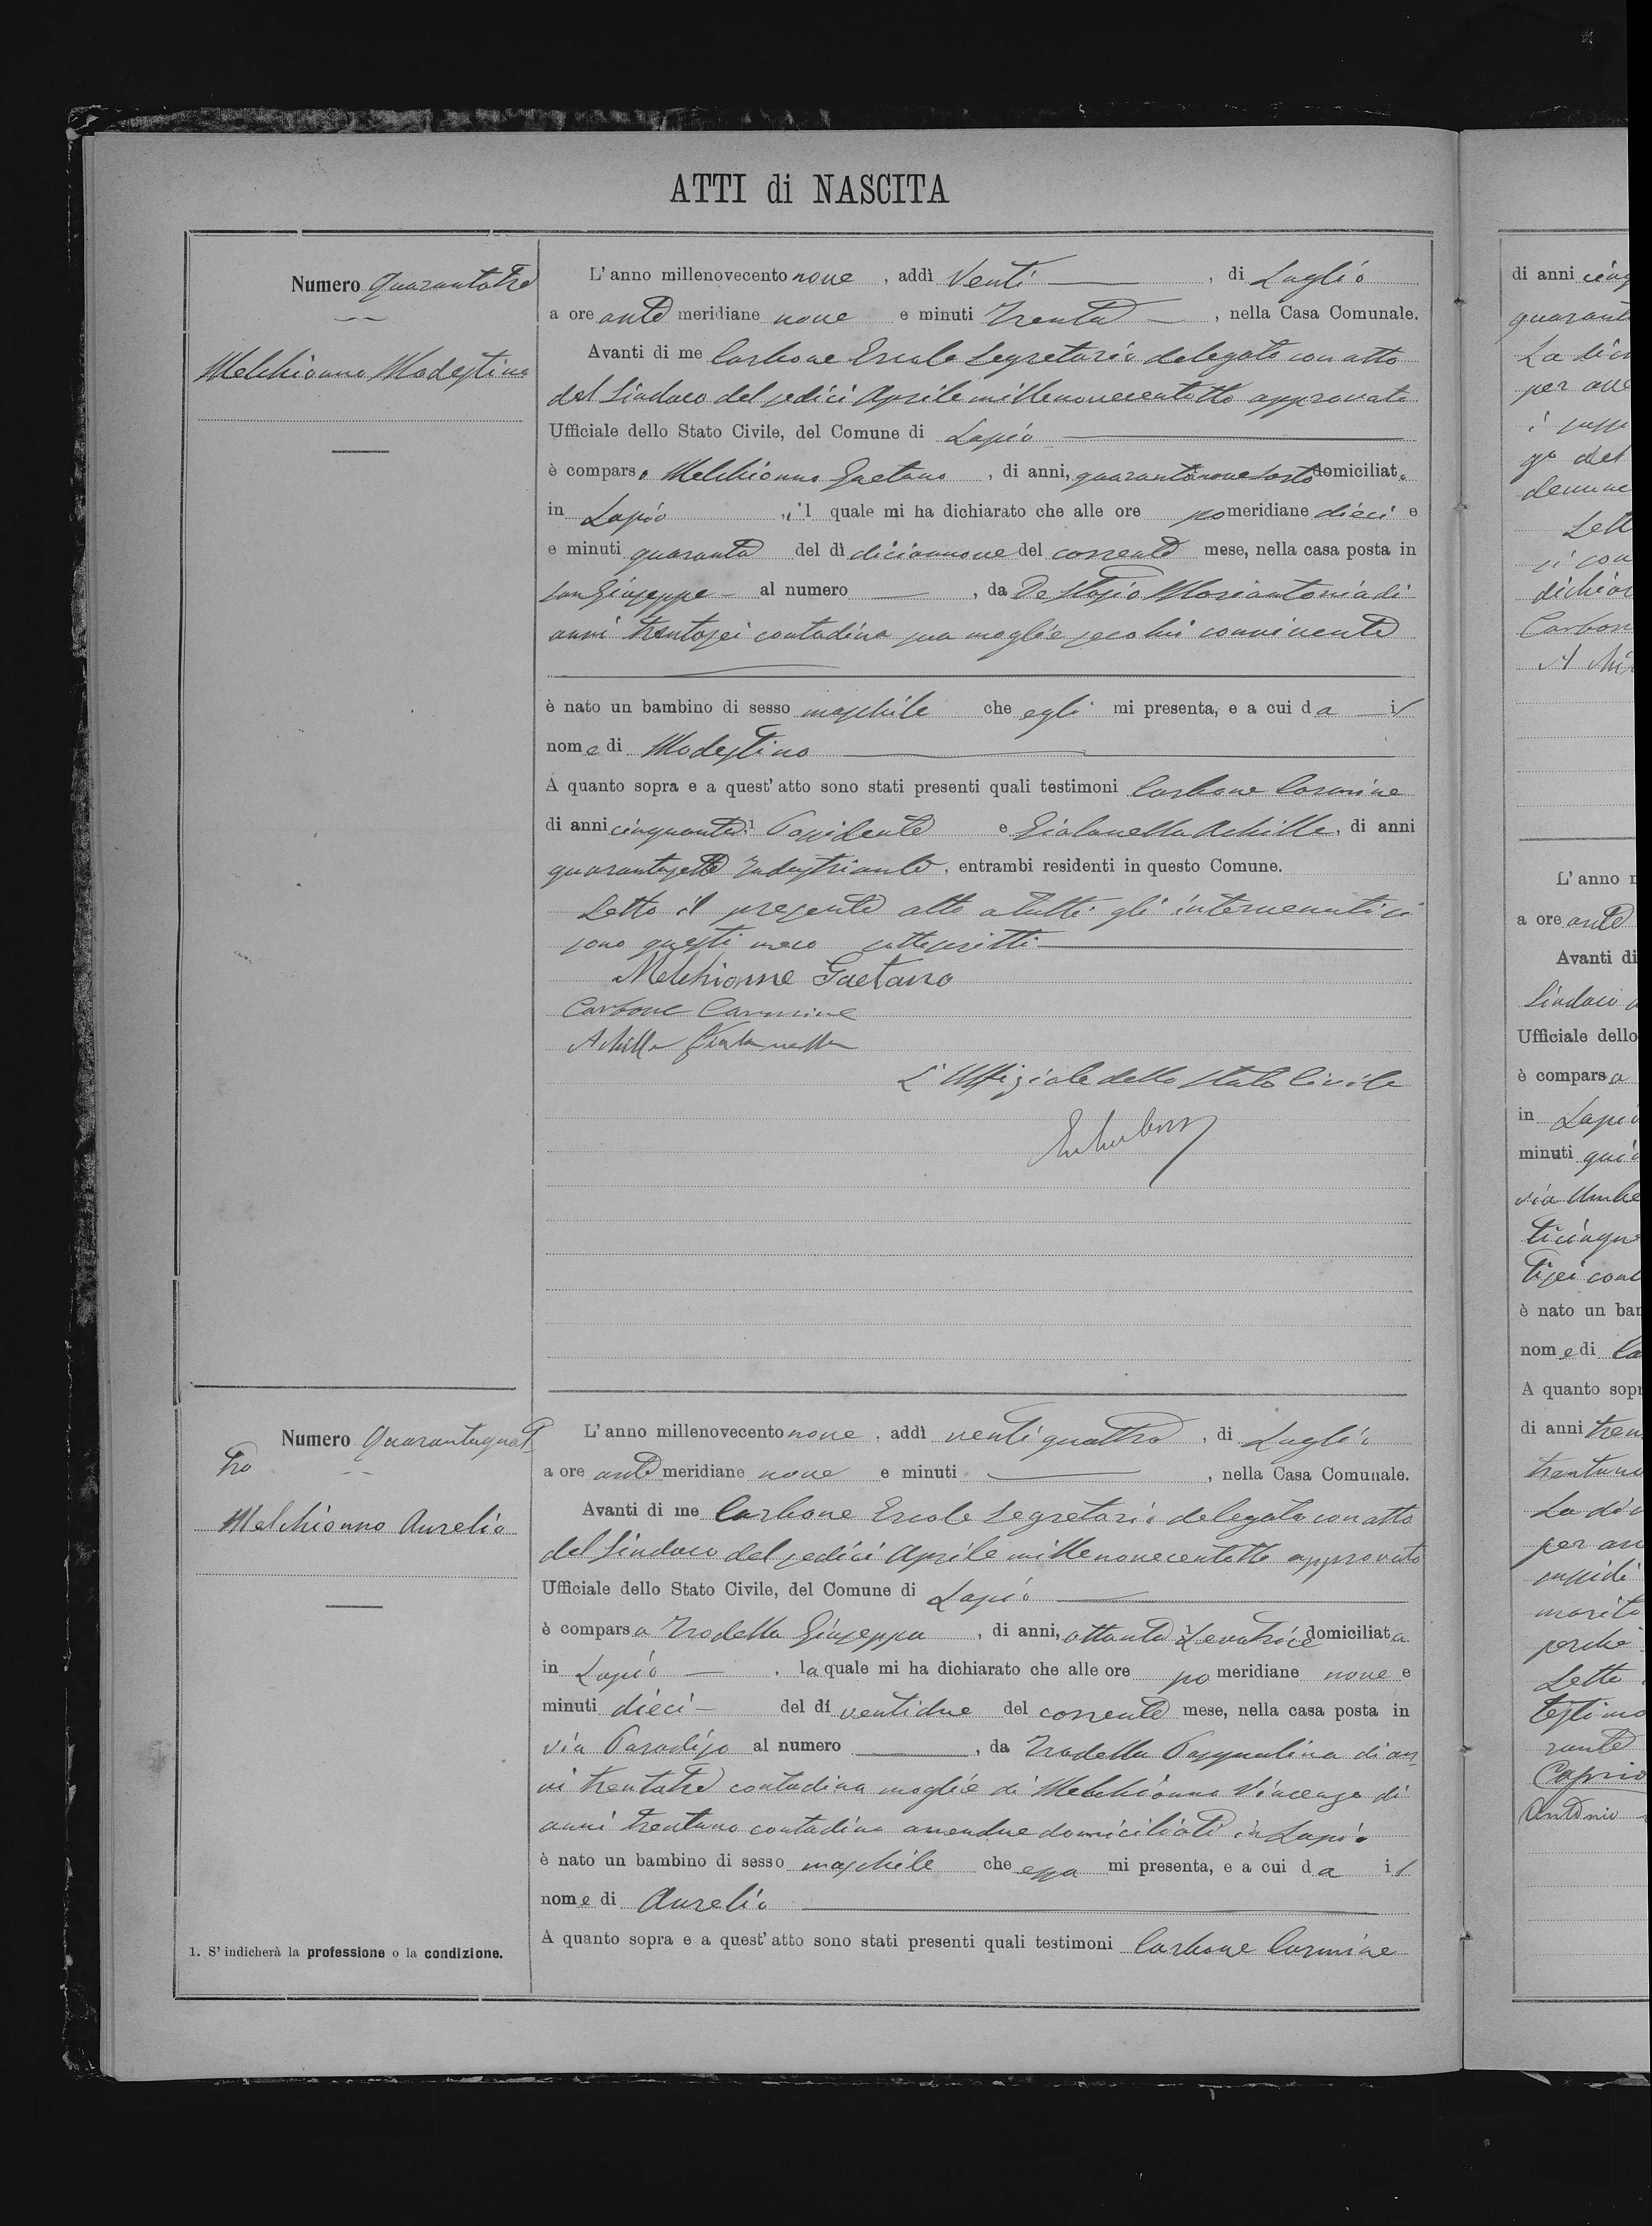 ATTI di NASCITA
Numero Quarantatre
Melchionno Modestino
L'anno millenovecento nove, addì Venti, di Luglio
a ore ante meridiane nove e minuti Trenta, nella Casa Comunale.
Avanti di me Carbone Ercole Segretario delegato con atto
del Sindaco del sedici Aprile millenovecentotto approvato
Ufficiale dello Stato Civile, del Comune di Lapio
è comparso Melchionno Gaetano, di anni, quarantanove Sarto domiciliato
in Lapio, il quale mi ha dichiarato che alle ore pomeridiane dieci e
e minuti quaranta del dì diciannove del corrente mese, nella casa posta in
San Giuseppe al numero, da De Stasio Mariantonia di
anni trentasei contadina sua moglie seco lui convivente
è nato un bambino di sesso maschile che egli mi presenta, e a cui da il
nome di Modestino
A quanto sopra e a quest'atto sono stati presenti quali testimoni Carbone Carmine
di anni cinquanta 1 Possidente e Gialanella Achille, di anni
quarantasette Industriante, entrambi residenti in questo Comune.
Letto il presente atto a tutti gli intervenuti si
sono questi meco sottoscritti
Melchionne Gaetano
Carbone Carmine
Achille Gialanella
L'Uffiziale dello Stato Civile
Numero Quarantaquat
tro
Melchionno Aurelio
L'anno millenovecento nove, addì ventiquattro, di Luglio
a ore ante meridiane nove e minuti, nella Casa Comunale.
Avanti di me Carbone Ercole Segretario delegato con atto
del Sindaco del sedici Aprile millenovecentotto approvato
Ufficiale dello Stato Civile, del Comune di Lapio
è comparsa Trodella Giuseppa, di anni, ottanta 1 Levatrice domiciliata
in Lapio, la quale mi ha dichiarato che alle ore pomeridiane nove e
minuti dieci del dì ventidue del corrente mese, nella casa posta in
via Paradiso al numero, da Trodella Pasqualina di an
ni trentatre contadina moglie di Melchionno Vincenzo di
anni trentuno contadino amendue domiciliati in Lapio
è nato un bambino di sesso maschile che essa mi presenta, e a cui da il
nome di Aurelio
A quanto sopra e a quest'atto sono stati presenti quali testimoni Carbone Carmine
1. S'indicherà la professione o la condizione.
di anni
La
per
del
Lett
si con
Carbon
L'anno
a ore ante
Avanti di
Sindaco
Ufficiale dello
è comparsa
in Lapio
minuti
via
è nato un
nome di
A quanto
di anni
per
marito
perchè
Letto
Antonio